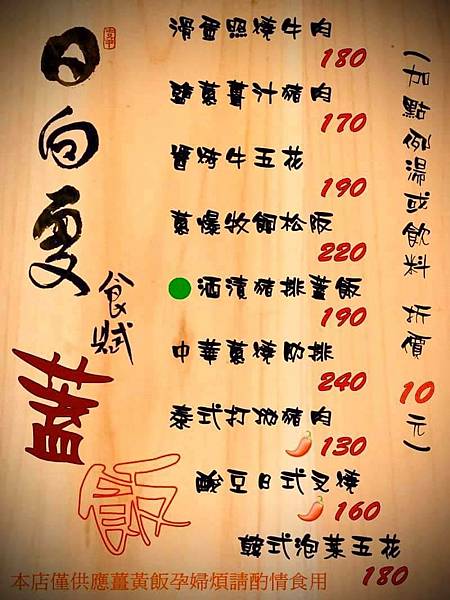 日向夏
食賦
蓋飯
滑蛋照燒牛肉
180
鹽蔥薑汁豬肉
170
醬烤牛五花
190
蔥爆牧飼松阪
220
酒漬豬排蓋飯
190
中華蔥燒肋排
240
泰式打拋豬肉
130
酸豆日式叉燒
160
韓式泡菜五花
180
(加點例湯或飲料 折價10元)
本店僅供應薑黃飯孕婦煩請酌情食用